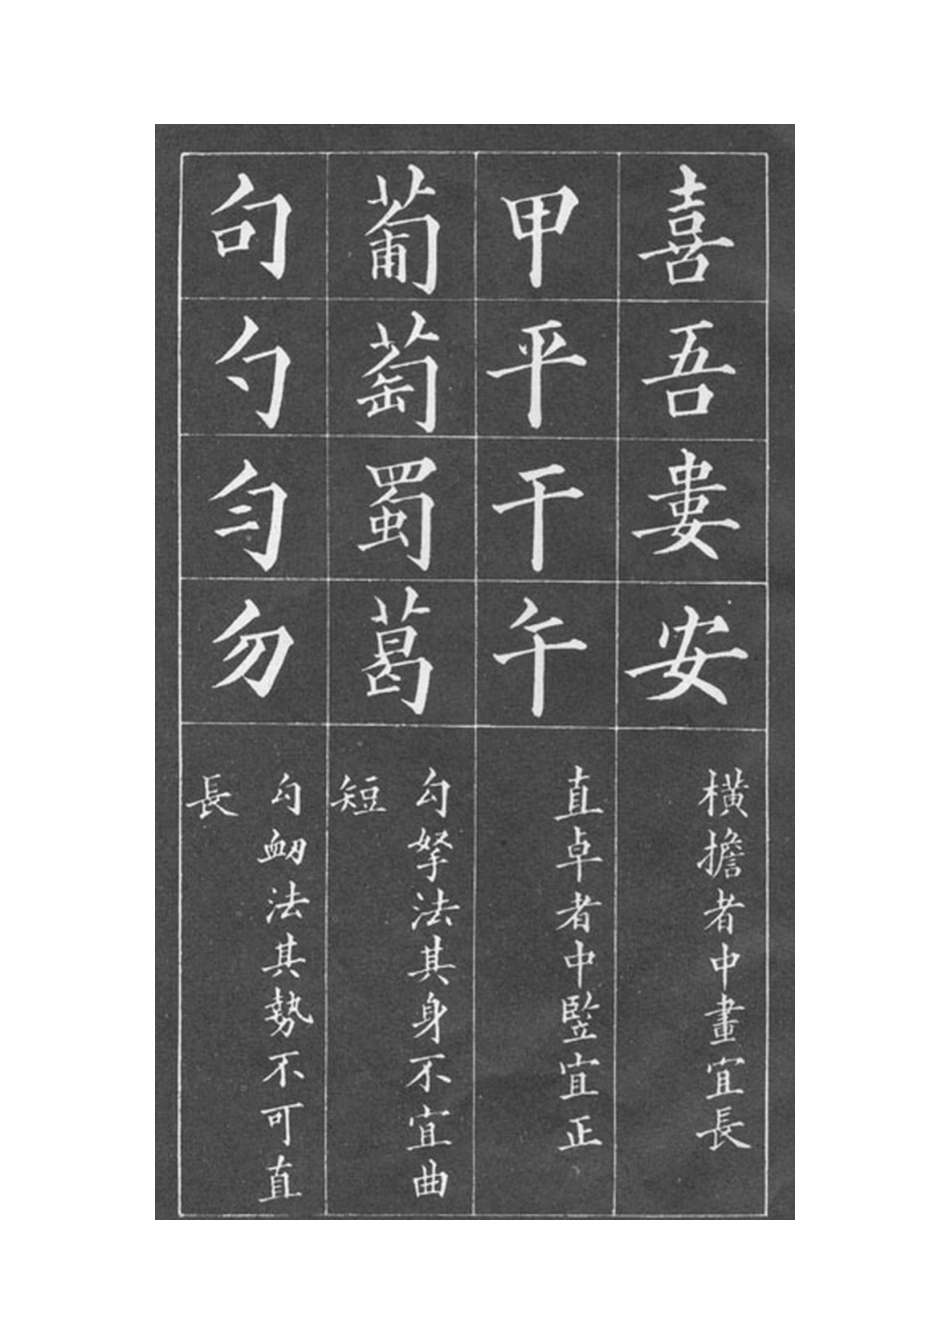 喜吾婁安
橫擔者中畫宜長
甲平干午
直卓者中豎宜正
葡萄蜀葛
勾拏法其身不宜曲
短
句勺勻勿
勾衂法其勢不可直
長